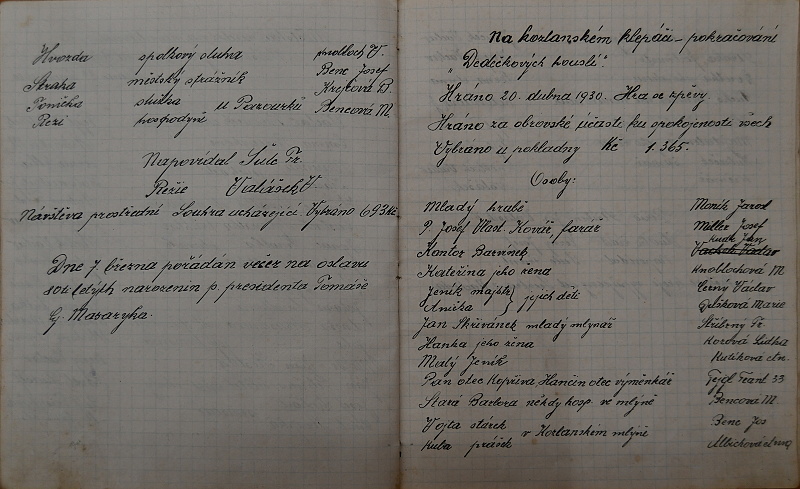 Hvozda spolkový sluha Knobloch V.
Straha městský strážník Benc Josef
Tonička služka u Parourků Krejcová B.
Rezi hospodyně Bencová M.
Napovídal Šulc Fr.
Režie Valášek V.
Návštěva prostřední Souhra ucházející. Vybráno 693 Kč
Dne 7. března pořádán večer na oslavu
80ti letých narozenin p. presidenta Tomáše
G. Masaryka.
Na kozlanském klepáči – pokračování
"Dědečkových houslí"
Hráno 20. dubna 1930. Hra se zpěvy
Hráno za obrovské účasti ku spokojenosti všech
Vybráno u pokladny Kč 1.365.
Osoby:
Mladý hrabě Jarosl
P. Josef Vlast. Kovář, farář Miller Josef
Kantor Barvínek Jan Václav
Kateřina jeho žena Knoblochová M
Jeník Anička jejich děti Černý Václav
Marie
Jan Skřivánek mladý mlynář Stříbrný Fr.
Hanka jeho žena Lidka
Malý Jeník Kulíková
Pan otec Kopřiva, Hančin otec výměnkář Fejgl Frant 33
Stará Barbora někdy hosp. ve mlýně Bencová M
Vojta stárek v Kozlanském mlýně Benc Jos
Kuba prášek